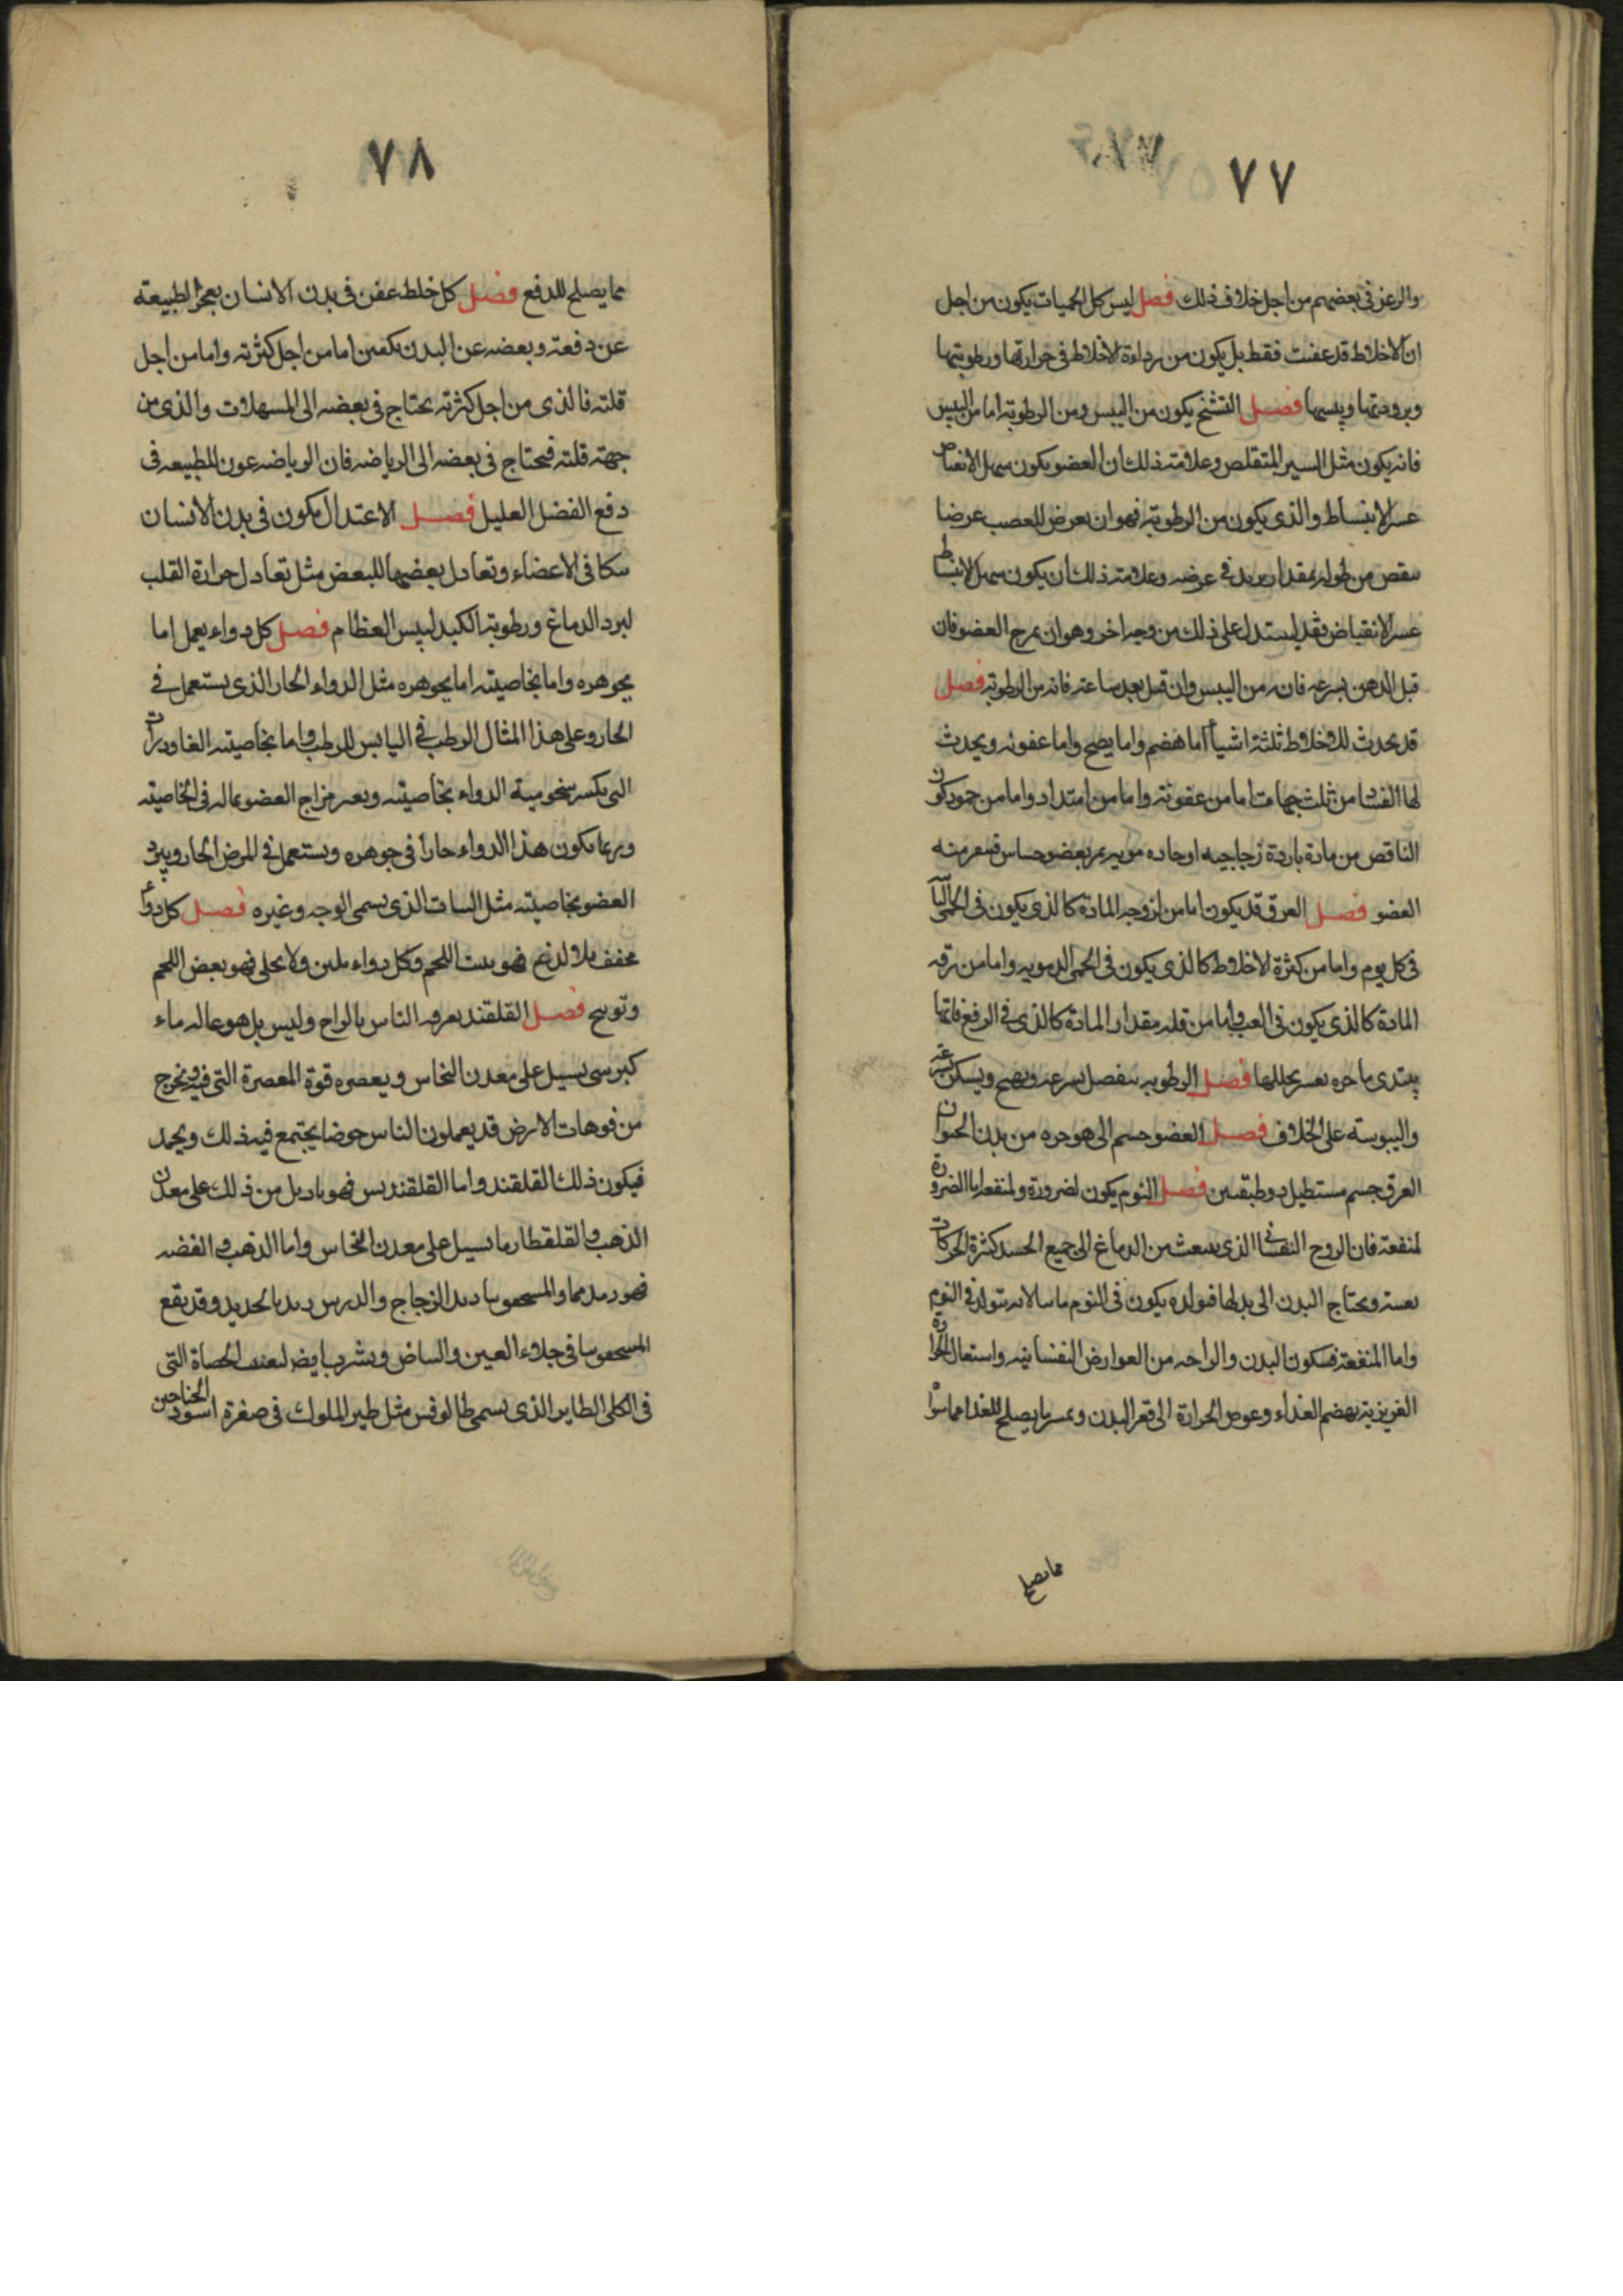 ٧٧
والرعن في بعضهم من اجل خلاف ذلك فصل ليس كل الحميات يكون من اجل
ان الاخلاط قد عفنت فقط بل يكون من رداءة الاخلاط في حرارتها ورطوبتها
وبرودتها ويبسها فصل التشنج يكون من اليبس ومن الرطوبة اما من اليبس
فانه يكون مثل السير المتقلص وعلامته ذلك ان العضو يكون سهل الانقباض
عسر الانبساط والذي يكون من الرطوبة فهو ان يعرض للعصب عرضا
ينقص من طوله بمقدار يزيد في عرضه وعلامته ذلك ان يكون سهل الانبساط
عسر الانقباض فقد يستدل على ذلك من وجه اخر وهو ان يمرخ العضو فان
قبل الدهن بسرعه فانه من اليبس وان قبل بعد ساعة فانه من الرطوبة فصل
قد يحدث للاخلاط ثلثة اشياء اما هضم واما نضج واما عفونه ويحدث
لها الفساد من ثلث جهات اما من عفونته واما من امتداد واما من جمود كون
الناقص من مادة باردة زجاجيه او حاده مريه يمر بعضو حساس فيقشعر منه
العضو فصل العرق قد يكون اما من لزوجه المادة كالذي يكون في الحمى النائبة
في كل يوم واما من كثرة الاخلاط كالذي يكون في الحمى الدمويه واما من رقه
المادة كالذي يكون في الغب واما من قله مقدار المادة كالذي في الربع فانها
يبتدى حاره يعسر تحللها فصل الرطوبه ينفصل بسرعه ويصح ويسكن بسرعة
واليبوسة على الخلاف فصل العضو جسم الي هو جزء من بدن الحيوان
العرق جسم مستطيل ذو طبقتين فصل النوم يكون لضرورة ولمنفعة اما الضرورة
لمنفعة فان الروح النفساني الذي ينبعث من الدماغ الى جميع الجسد كثرة الحركات
يعينه ويحتاج البدن الى بدلها فتولده يكون في النوم لانه يتولد في النوم
واما المنفعة فسكون البدن والراحه من العوارض النفسانيه واستعمال الحرارة
الغريزية بهضم الغذاء وغوص الحرارة الى قعر البدن ما يصلح للغذا مما
مما يصلح
٧٨
مما يصلح للدفع فصل كل خلط عفن في بدن الانسان يعجز الطبيعة
عن دفعة وبعضه عن البدن يكون اما من اجل كثرته واما من اجل
قلته فالذي من اجل كثرته يحتاج في بعضه الى المسهلات والذي من
جهة قلته فيحتاج في بعضه الى الرياضه فان الرياضه عون للطبيعه في
دفع الفضل العليل فصل الاعتدال يكون في بدن الانسان
بتكافي الاعضاء وتعادل بعضها للبعض مثل تعادل حرارة القلب
لبرد الدماغ ورطوبة الكبد ليبس العظام فصل كل دواء يعمل اما
بجوهره واما بخاصيته اما بجوهره مثل الدواء الحار الذي يستعمل في
الحار وعلى هذا المثال الرطب في اليابس للرطب واما بخاصيته
التي يكسر سخونية الدواء بخاصيته ويغير مزاج العضو بماله في الخاصية
وربما يكون هذا الدواء حارا في جوهره ويستعمل في المرض الحار ويبرد
العضو بخاصيته مثل النبات الذي يسمى الوجه وغيره فصل كل دواء
مجفف بلا لذع فهو ينبت اللحم وكل دواء يلين ولا يجلى فهو بعض اللحم
وتوسخ فصل القلقند يعرفه الناس بالواح وليس بل هو عاله ماء
كبريتي يسيل على معدن النحاس ويعصره قوة المعصرة التي فيه ويخرج
من فوهات الارض قد يعملون الناس حوضا يجتمع فيه ذلك ويجمد
فيكون ذلك القلقند واما القلقنديس فهو ما دبل من ذلك على معدن
الذهب والقلقطار ما يسيل على معدن النحاس واما الذهب والفضه
الزجاج بالحديد وقد يقع
في جلاء العين والبياض ويشرب ايضا لتفتت الحصاة التي
في الكلى الطاير الذي يسمى طالوفس مثل طير الملوك في صغرة اسود الجناحين